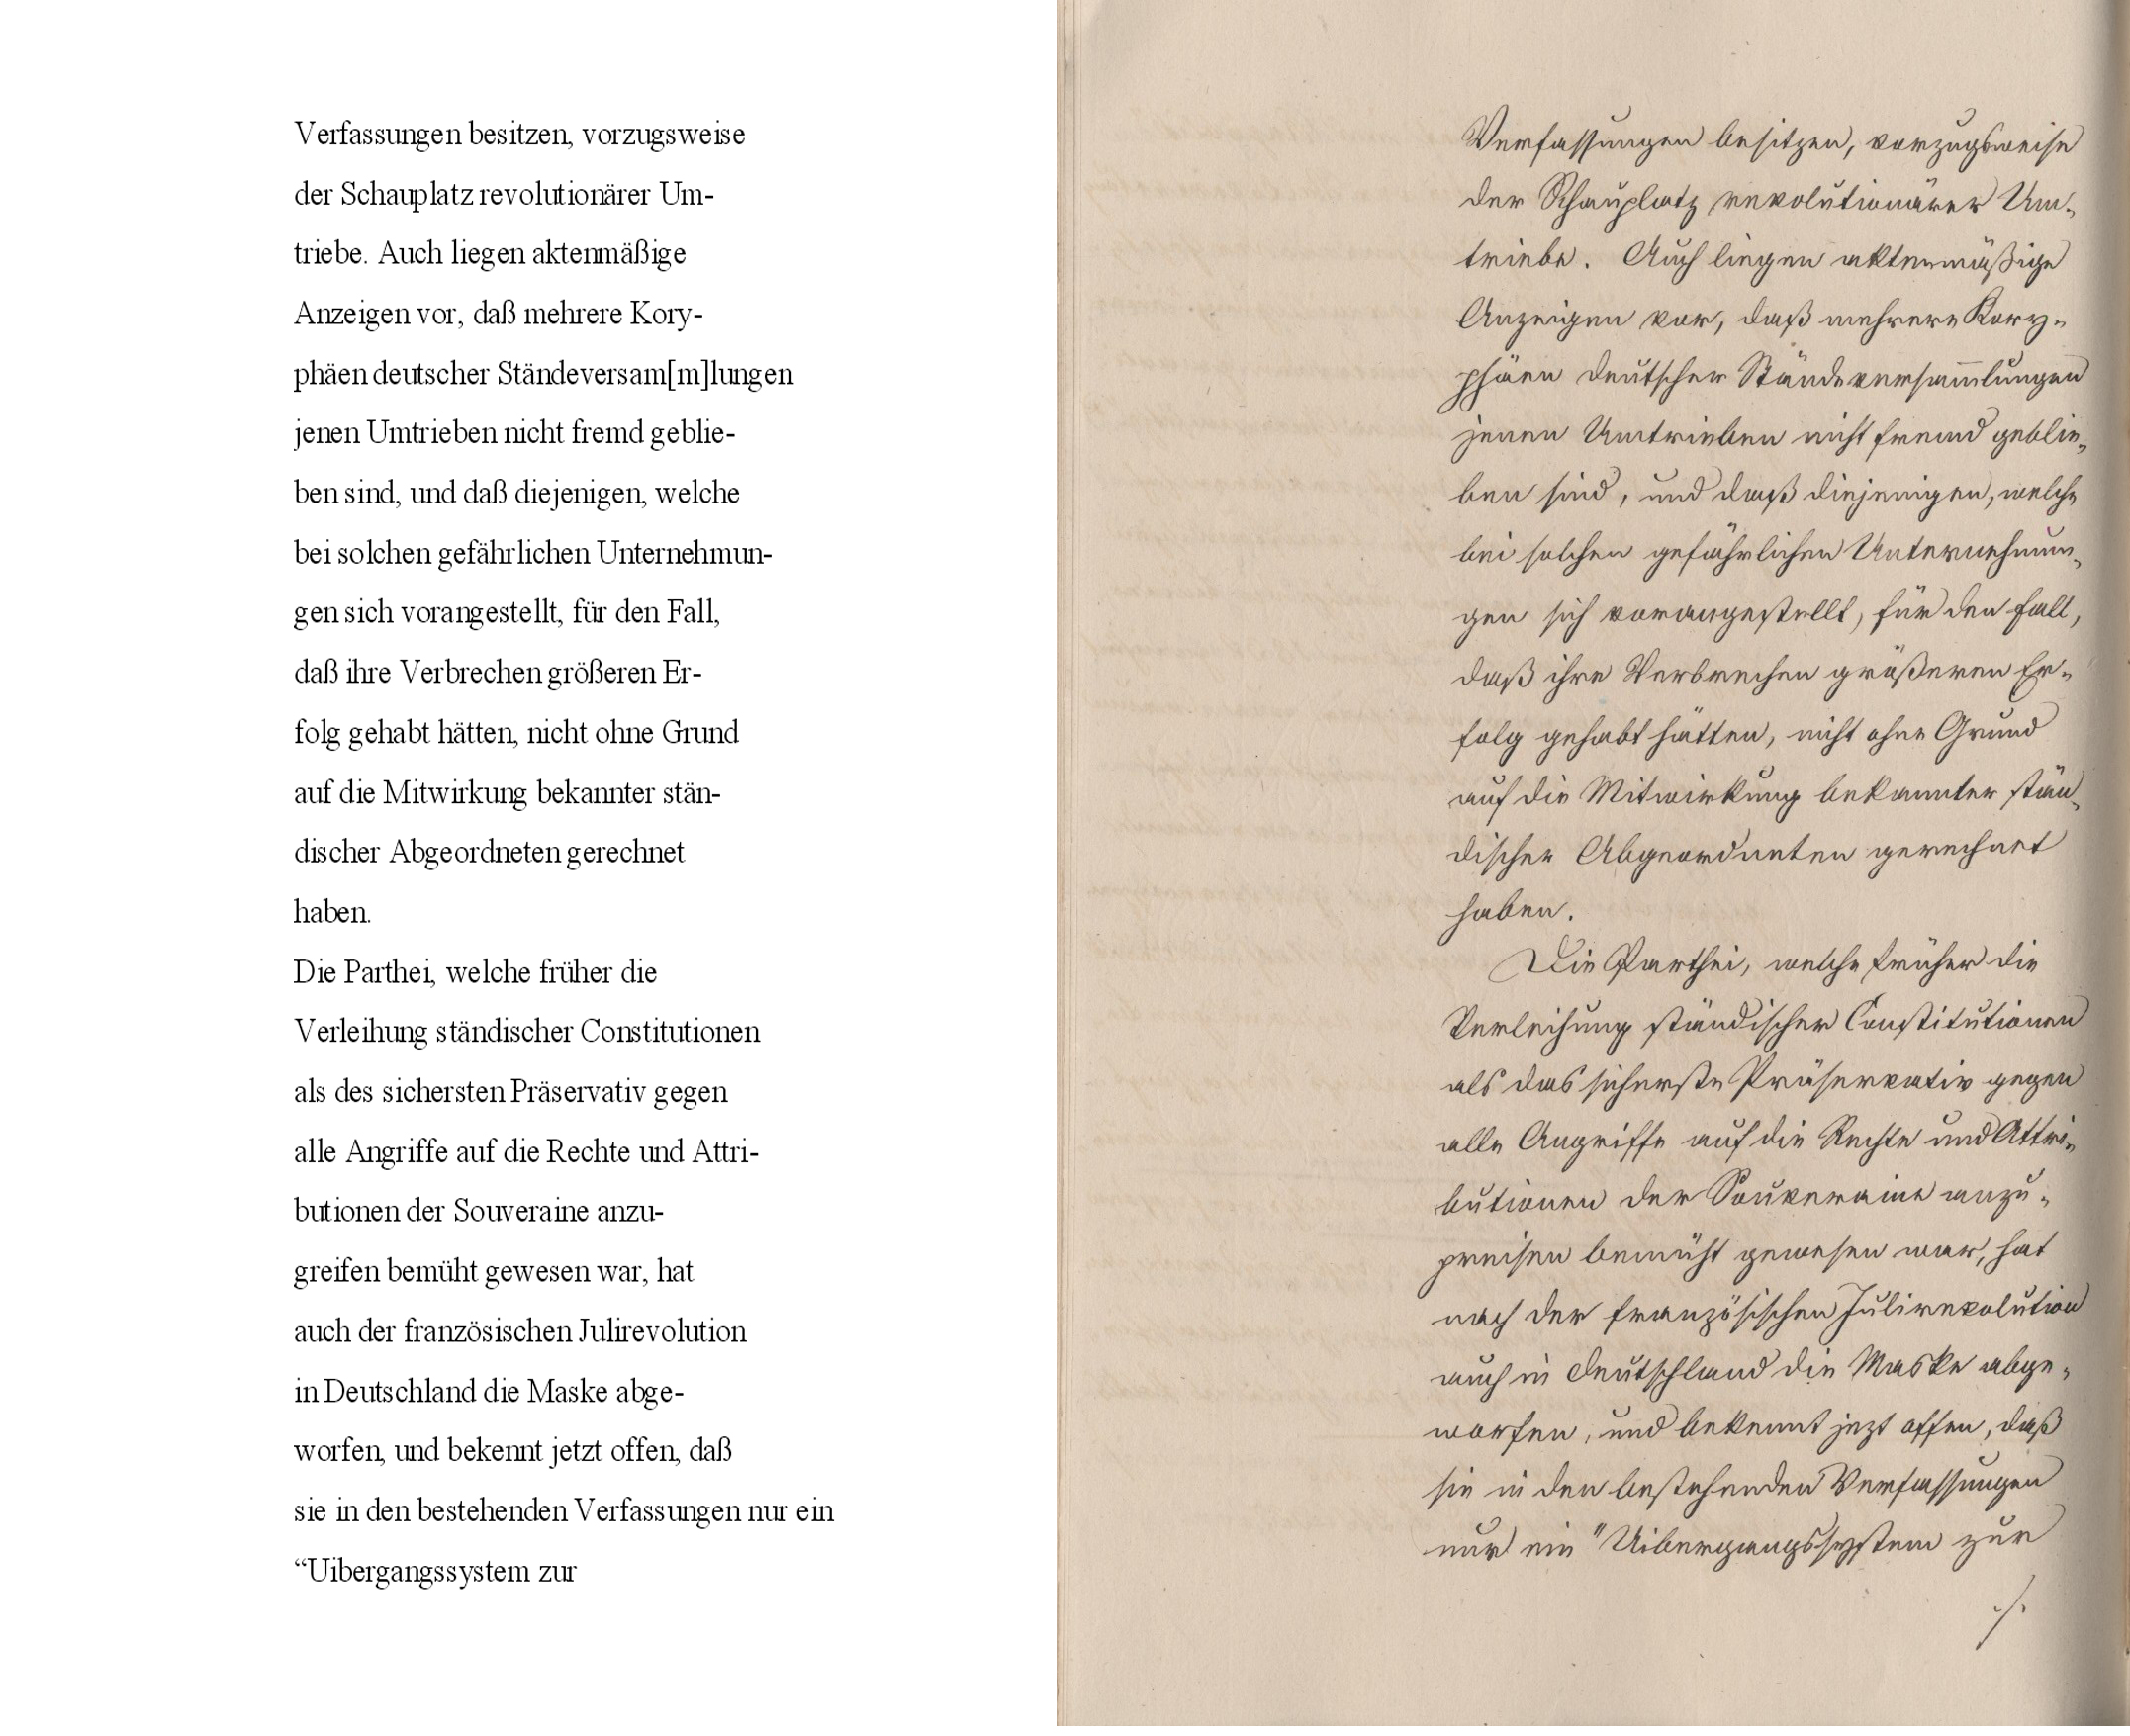 Verfassungen besitzen, vorzugsweise
der Schauplatz revolutionärer Um-
triebe. Auch liegen aktenmäßige
Anzeigen vor, daß mehrere Kory-
phäen deutscher Ständeversam[m]lungen
jenen Umtrieben nicht fremd geblie-
ben sind, und daß diejenigen, welche
bei solchen gefährlichen Unternehmun-
gen sich vorangestellt, für den Fall,
daß ihre Verbrechen größeren Er-
folg gehabt hätten, nicht ohne Grund
auf die Mitwirkung bekannter stän-
discher Abgeordneten gerechnet
haben.
Die Parthei, welche früher die
Verleihung ständischer Constitutionen
als des sichersten Präservativ gegen
alle Angriffe auf die Rechte und Attri-
butionen der Souveraine anzu-
greifen bemüht gewesen war, hat
auch der französischen Julirevolution
in Deutschland die Maske abge-
worfen, und bekennt jetzt offen, daß
sie in den bestehenden Verfassungen nur ein
“Uibergangssystem zur
Verfassungen besitzen, vorzugsweise
der Schauplatz revolutionärer Um-
triebe. Auch liegen aktenmäßige
Anzeigen vor, daß mehrere Kory-
phäen deutscher Ständeversam̅lungen
jenen Umtrieben nicht fremd geblie-
ben sind, und daß diejenigen, welche
bei solchen gefährlichen Unternehmun-
gen sich vorangestellt, für den Fall,
daß ihre Verbrechen größeren Er-
folg gehabt hätten, nicht ohne Grund
auf die Mitwirkung bekannter stän-
discher Abgeordneten gerechnet
haben.
Die Parthei, welche früher die
Verleihung ständischer Constitutionen
als das sicherste Präservativ gegen
alle Angriffe auf die Rechte und Attri-
butionen der Souveraine anzu-
preisen bemüht gewesen war, hat
nach der französischen Julirevolution
auch in Deutschland die Maske abge-
worfen, und bekennt jezt offen, daß
sie in den bestehenden Verfassungen
nur ein "Uibergangssystem zur
./.